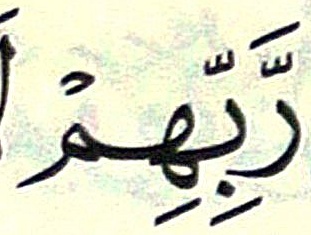 رَّبِّهِمْ